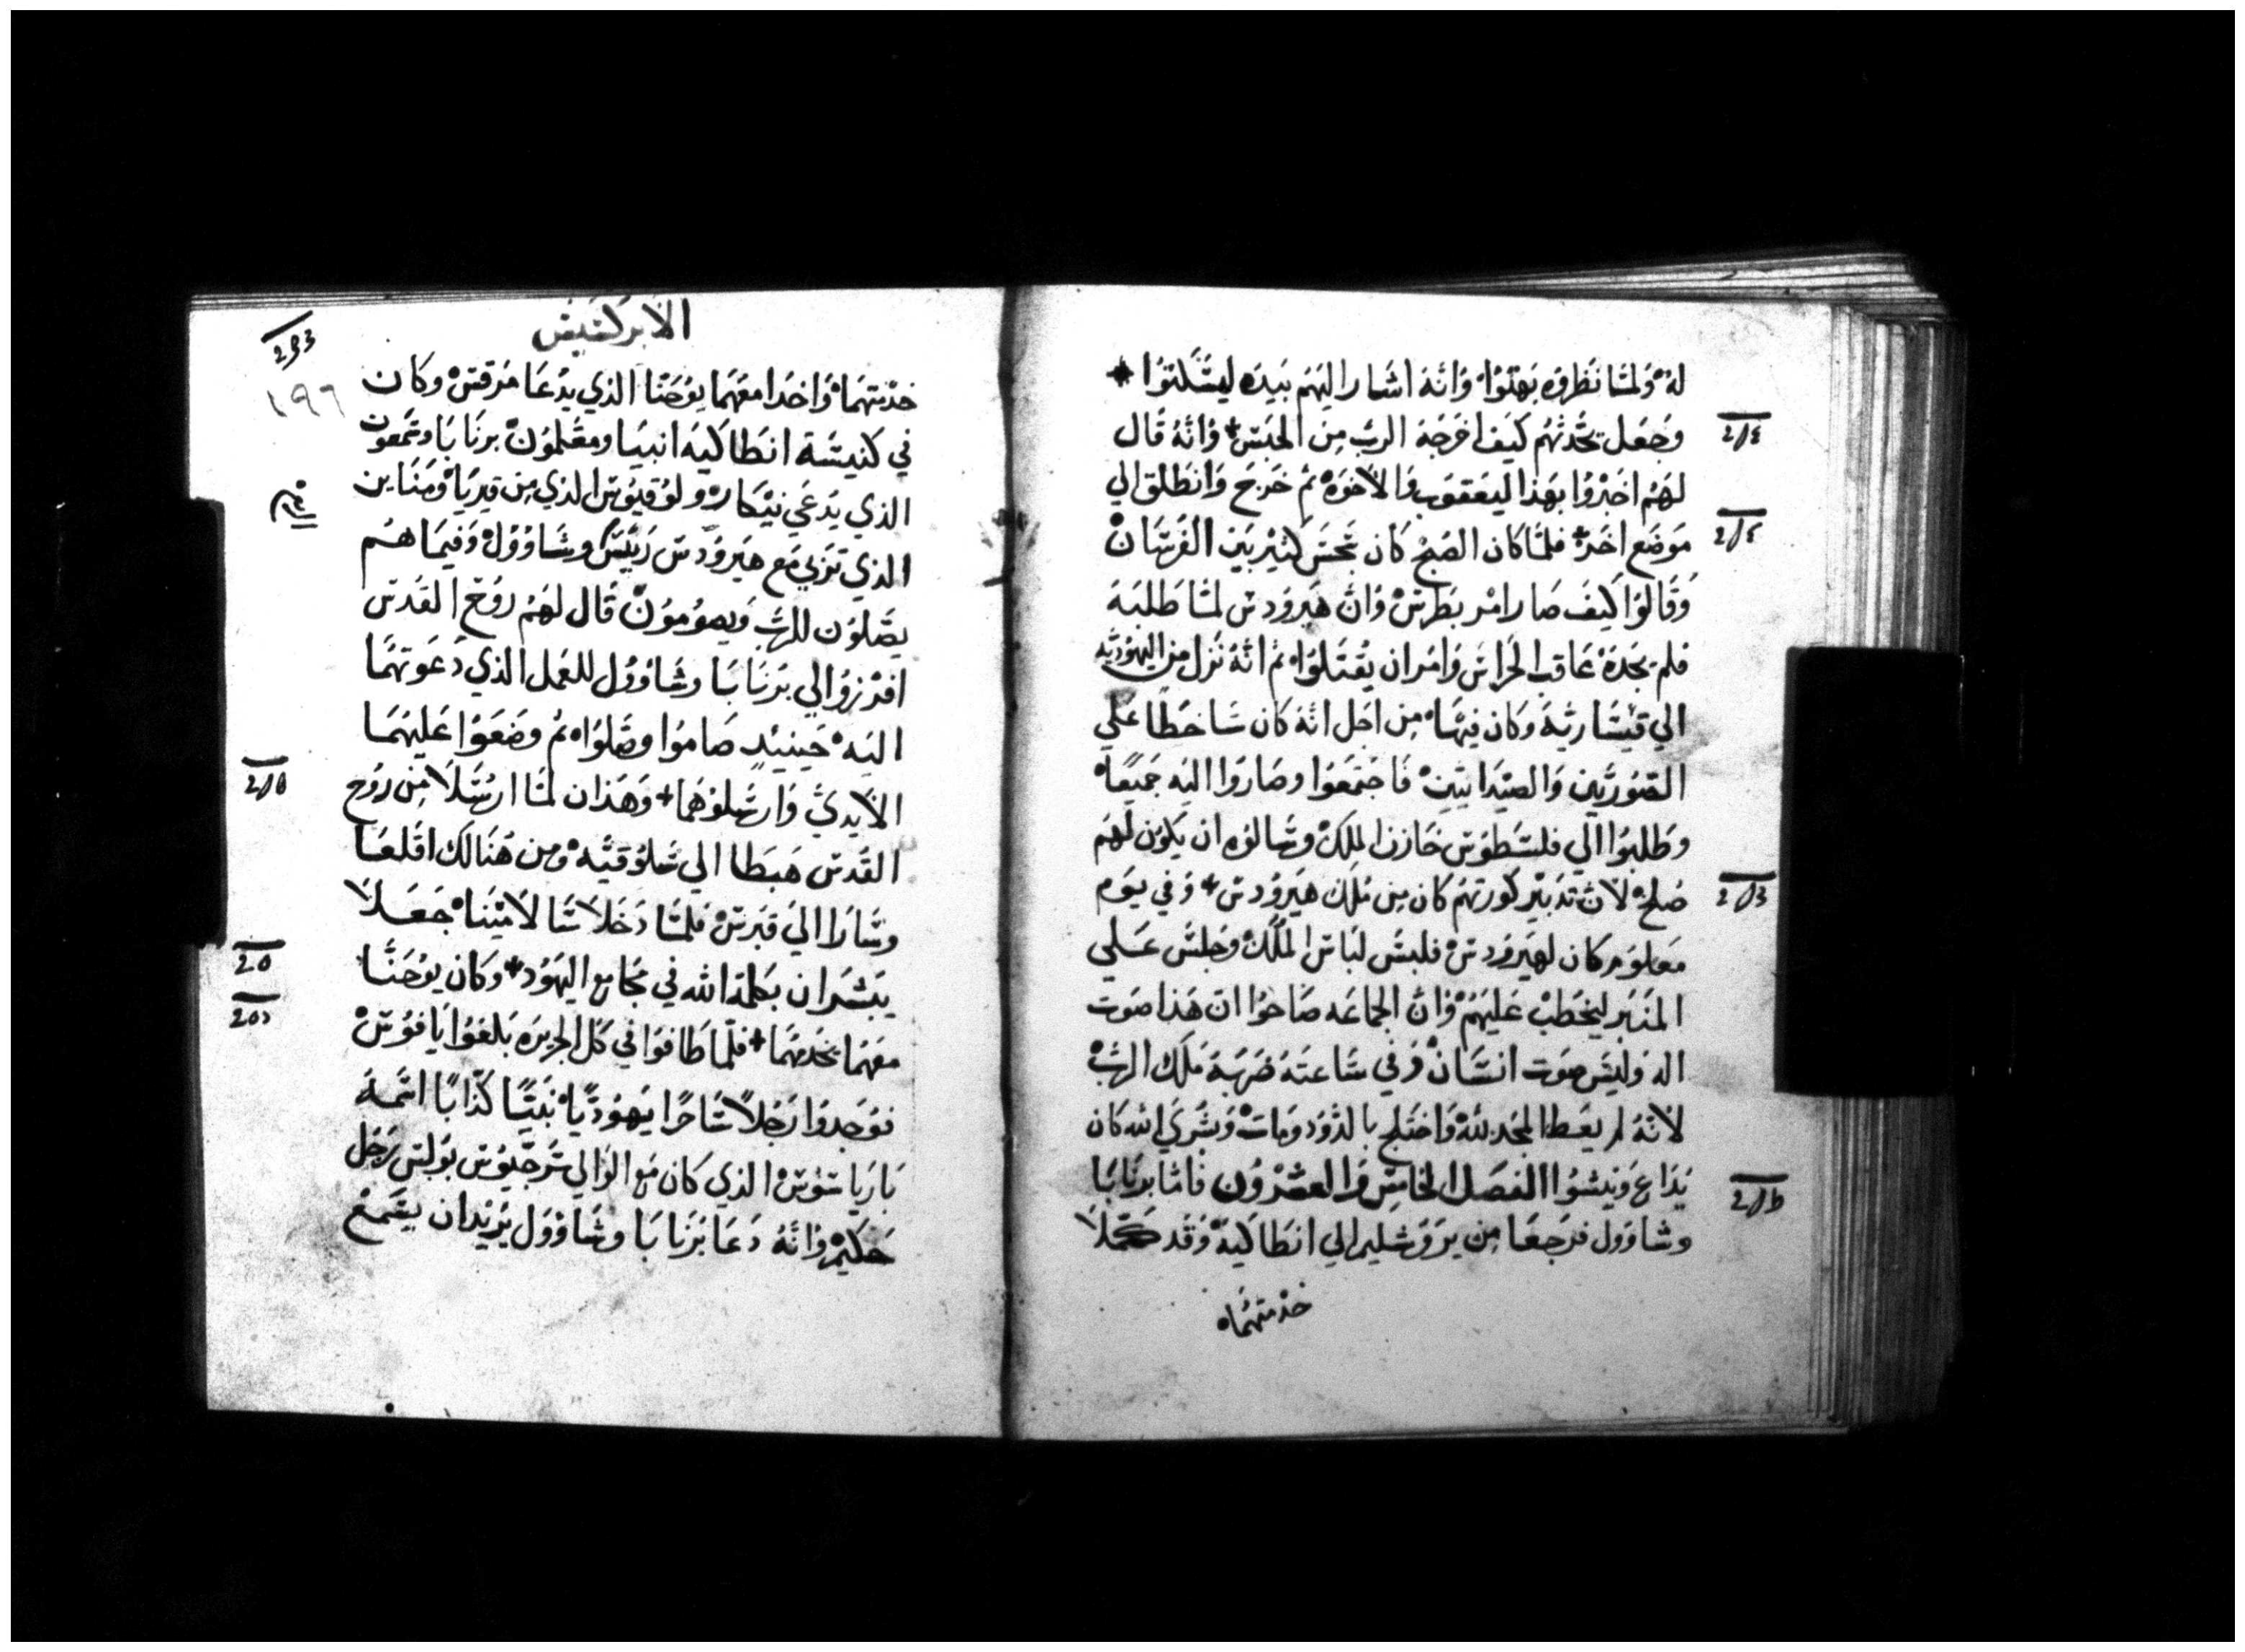 له ولما نظروه بهتوا وانه اشار اليهم بيده ليسكتوا
وجعل يحدثهم كيف اخرجه الرب من الحبس وانه قال
لهم اخبروا بهذا ليعقوب والاخوه ثم خرج وانطلق الي
موضع اخر فلما كان الصبح كان تجس كثير بين الفرسان
وقالوا كيف صار امر بطرس وان هيرودس لما طلبه
فلم يجده عاقب الحراس وامر ان يقتلوا ثم انه نزل من اليهوديه
الي قيساريه وكان فيها من اجل انه كان ساخطا علي
الصوريين والصيدانيين فاجتمعوا وصاروا اليه جميعا
وطلبوا الي فلسطوس خازن الملك وسالوه ان يكون لهم
صلح لان تدبير كورتهم كان من ملك هيرودس وفي يوم
معلوم كان لهيرودس فلبس لباس الملك وجلس علي
المنبر ليخطب عليهم وان الجماعه صاحوا ان هذا صوت
اله وليس صوت انسان وفي ساعته ضربه ملك الرب
لانه لم يعط المجد لله واختلج بالدود ومات وبشري الله كان
يذاع وينشوا الفصل الخامس والعشرون فاما برنابا
وشاوول فرجعا من يروشليم الي انطاكيه وقد كملا
خدمتهما
الابركسيس
١٩٦
خدمتهما واخدا معهما يوحنا الذي يدعا مرقس وكان
في كنيسة انطاكيه انبيا ومعلمون برنابا وشمعون
الذي يدعي نيكار ولوقيوس الذي من قيريا ومناين
الذي تربي مع هيرودس رييس وشاوول وفيما هم
يصلون للرب ويصومون قال لهم روح القدس
افرزوا لي برنابا وشاوول للعمل الذي دعوتهما
اليه حينيذ صاموا وصلوا ثم وضعوا عليهما
الايدي وارسلوهما وهذان لما ارسلا من روح
القدس هبطا الي سلوقيه ومن هنالك اقلعا
وسارا الي قبرس فلما دخلا سالامينا جعلا
يبشران بكلمة الله في مجامع اليهود وكان يوحنا
معهما يخدمهما فلما طافوا في كل الجزيره بلغوا يافوس
فوجدوا رجلا ساحرا يهوديا نبيا كذابا اسمه
بارياشوس الذي كان مع الوالي سرجيوس بولس رجل
حكيم وانه دعا برنابا وشاوول يريد ان يسمع